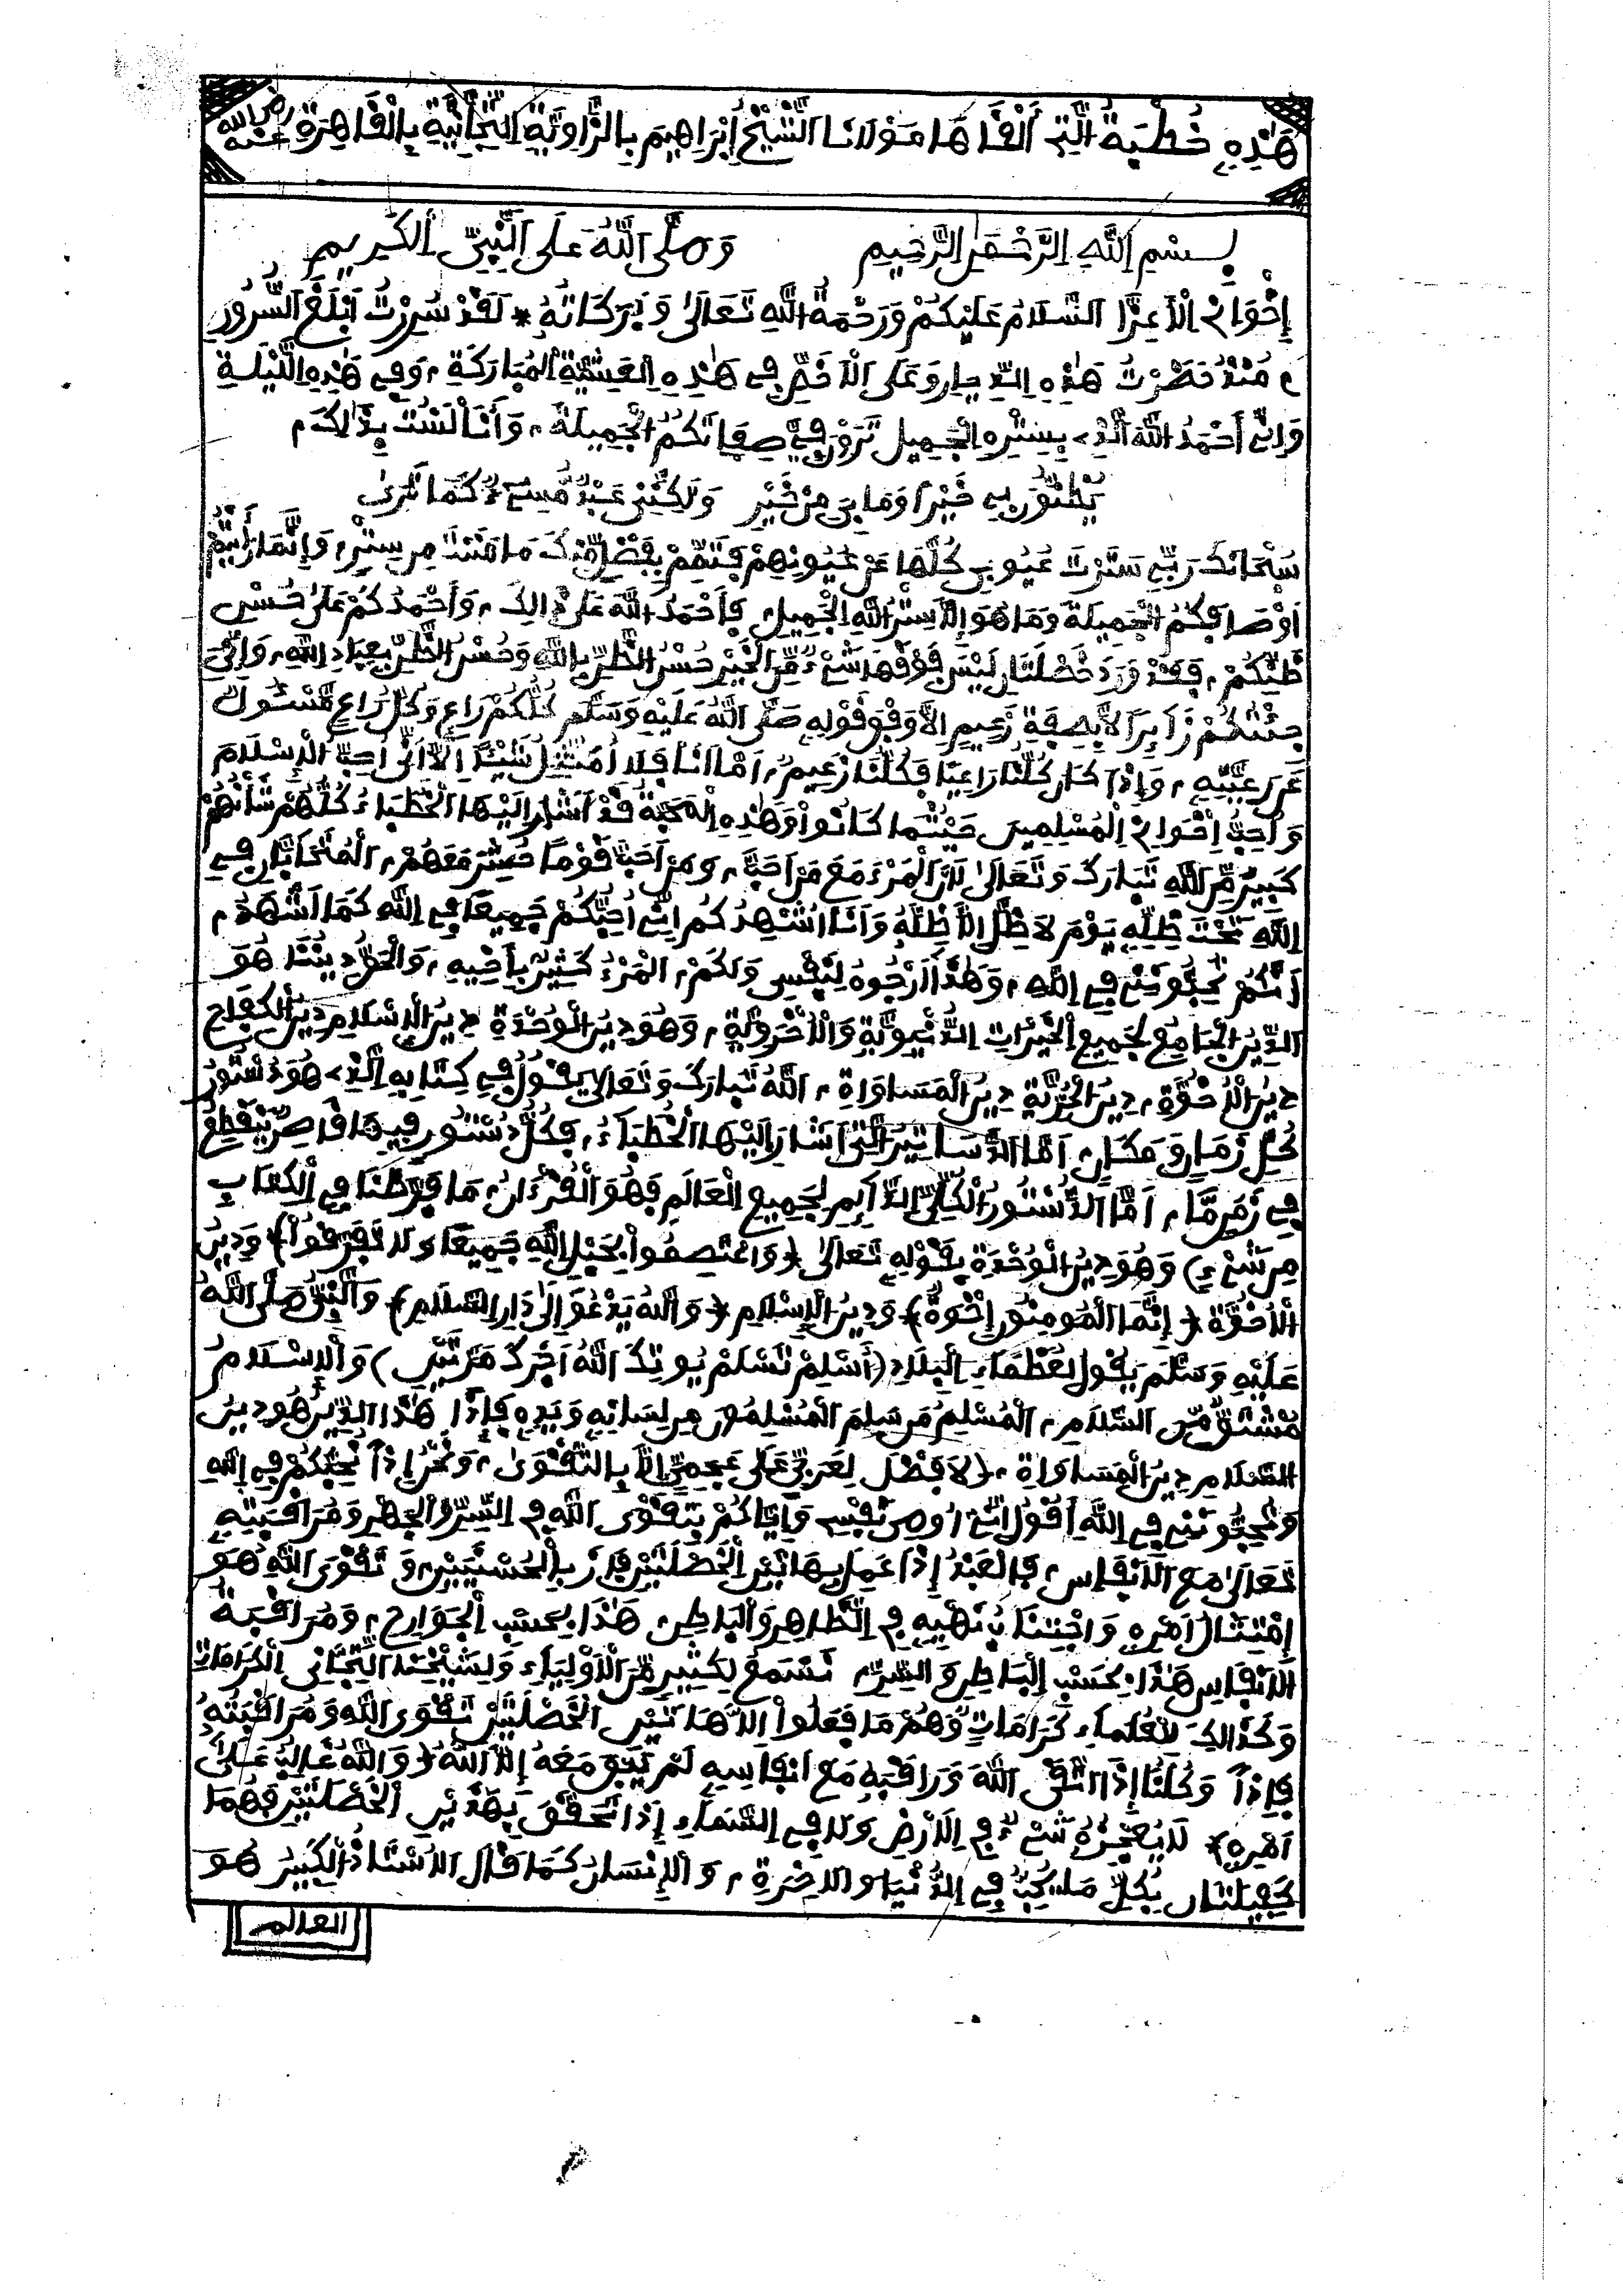 هَٰذِهِ خُطْبَةُ الَّتِي أَلْقَاهَا مَوْلَانَا الشَّيْخُ إِبْرَاهِيمَ بِالزَّاوِيَةِ التِّجَانِيَّةِ بِالْقَاهِرَةِ رضي الله عنه
بِسْمِ اللَّهِ الرَّحْمَٰنِ الرَّحِيمِ وَصَلَّى اللَّهُ عَلَى النَّبِيِّ الْكَرِيمِ
إِخْوَانِي الْأَعِزَّا السَّلَامُ عَلَيْكُمْ وَرَحْمَةُ اللَّهِ تَعَالَىٰ وَبَرَكَاتُهُ * لَقَدْ سُرِرْتُ أَبْلَغَ السُّرُورِ
مُنْذُ حَضَرْتُ هَٰذِهِ الدِّيَارِ وَعَلَى الْأَخَصِّ فِي هَٰذِهِ الْعَشِيَّةِ الْمُبَارَكَةِ، وَفِي هَٰذِهِ اللَّيْلَةِ
وَإِنِّي أَحْمَدُ اللَّهَ الَّذِي بِسِتْرِهِ الْجَمِيلِ تَرَوْنَ فِيَّ صِفَاتَكُمُ الْجَمِيلَةَ، وَأَنَا لَسْتُ بِذَٰلِكَ
يَظُنُّونَ بِي خَيْرًا وَمَا بِيَ مِنْ خَيْرٍ وَلَٰكِنَّنِي عَبْدٌ مُّسِيءٌ كَمَا تَرَىٰ
سُبْحَانَكَ رَبِّي سَتَرْتَ عُيُوبِي كُلَّهَا عَنْ عُيُونِهِمْ فَتَمِّمْ بِفَضْلٍ مِّنْكَ مَا مَنَنْتَ مِن سِتْرٍ، وَإِنَّمَا رَأَيْتُمْ
أَوْصَافَكُمُ الْجَمِيلَةَ وَمَا هُوَ إِلَّا سِتْرُ اللَّهِ الْجَمِيلِ، فَأَحْمَدُ اللَّهَ عَلَىٰ ذَٰلِكَ، وَأَحْمَدُكُمْ عَلَىٰ حُسْنِ
ظَنِّكُمْ، فَقَدْ وَرَدَ خَصْلَتَانِ لَيْسَ فَوْقَهُمَا شَيْءٌ مِّنَ الْخَيْرِ حُسْنُ الظَّنِّ بِاللَّهِ وَحُسْنُ الظَّنِّ بِعِبَادِ اللَّهِ، وَإِنِّي
جِئْتُكُمْ زَائِرًا لَا بِصِفَةِ زَعِيمٍ إِلَّا وَفْقَ قَوْلِهِ صَلَّى اللَّهُ عَلَيْهِ وَسَلَّمَ كُلُّكُمْ رَاعٍ وَكُلُّ رَاعٍ مَّسْئُولٌ
عَن رَّعِيَّتِهِ، وَإِذَا كَانَ كُلُّنَا رَاعِيًا فَكُلُّنَا زَعِيمٌ، أَمَّا أَنَا فَلَا أُمَثِّلُ شَيْئًا إِلَّا أَنِّي أُحِبُّ الْإِسْلَامَ
وَأُحِبُّ إِخْوَانِي الْمُسْلِمِينَ حَيْثُمَا كَانُوا وَهَٰذِهِ الْمَحَبَّةُ قَدْ أَشَارَ إِلَيْهَا الْخُطَبَاءُ كُلُّهُمْ شَأْنُهُمْ
كَبِيرٌ مِّنَ اللَّهِ تَبَارَكَ وَتَعَالَىٰ لِأَنَّ الْمَرْءَ مَعَ مَنْ أَحَبَّ، وَمَنْ أَحَبَّ قَوْمًا حُشِرَ مَعَهُمْ، الْمُتَحَابَّانِ فِي
اللَّهِ تَحْتَ ظِلِّهِ يَوْمَ لَا ظِلَّ إِلَّا ظِلُّهُ وَأَنَا أُشْهِدُكُمْ إِنِّي أُحِبُّكُمْ جَمِيعًا فِي اللَّهِ كَمَا أَشْهَدُ
أَنَّكُمْ تُحِبُّونَنِي فِي اللَّهِ، وَهَٰذَا أَرْجُوهُ لِنَفْسِي وَلَكُمْ، الْمَرْءُ كَثِيرٌ بِأَخِيهِ، وَالْحَقُّ دِينُنَا هُوَ
الدِّينُ الْجَامِعُ لِجَمِيعِ الْخَيْرَاتِ الدُّنْيَوِيَّةِ وَالْأُخْرَوِيَّةِ، وَهُوَ دِينُ الْوَحْدَةِ دِينُ الْإِسْلَامِ دِينُ الْكِفَاحِ
دِينُ الْأُخُوَّةِ، دِينُ الْحُرِّيَّةِ دِينُ الْمَسَاوَاةِ، اللَّهُ تَبَارَكَ وَتَعَالَىٰ يَقُولُ فِي كِتَابِهِ الَّذِي هُوَ دُسْتُورُ
كُلِّ زَمَانٍ وَمَكَانٍ، أَمَّا الدَّسَاتِيرُ الَّتِي أَشَارَ إِلَيْهَا الْخُطَبَاءُ، فَكُلُّ دُسْتُورٍ فِيهَا قَاصِرٌ يَنْقَطِعُ
فِي زَمَنٍ مَّا، أَمَّا الدُّسْتُورُ الْكُلِّيُّ الدَّائِمِ لِجَمِيعِ الْعَالَمِ فَهُوَ الْقُرْءَانُ، مَا فَرَّطْنَا فِي الْكِتَابِ
مِن شَيْءٍ) وَهُوَ دِينُ الْوَحْدَةِ بِقَوْلِهِ تَعَالَىٰ {وَاعْتَصِمُوا بِحَبْلِ اللَّهِ جَمِيعًا وَلَا تَفَرَّقُوا} وَدِينُ
الْأُخُوَّةِ {إِنَّمَا الْمُومِنُونَ إِخْوَةٌ} وَدِينُ الْإِسْلَامِ {وَاللَّهُ يَدْعُو إِلَىٰ دَارِ السَّلَامِ} وَالنَّبِيُّ صَلَّى اللَّهُ
عَلَيْهِ وَسَلَّمَ يَقُولُ لِعُظَمَاءِ الْبِلَادِ (أَسْلِمْ تَسْلَمْ يُوتِكَ اللَّهُ أَجْرَكَ مَرَّتَيْنِ) وَالْإِسْلَامُ
مُشْتَقٌّ مِّنَ السَّلَامِ، الْمُسْلِمُ مَن سَلِمَ الْمُسْلِمُونَ مِن لِسَانِهِ وَيَدِهِ فَإِذًا هَٰذَا الدِّينُ هُوَ دِينُ
السَّلَامِ دِينُ الْمَسَاوَاةِ، (لَا فَضْلَ لِعَرَبِيٍّ عَلَىٰ عَجَمِيٍّ إِلَّا بِالتَّقْوَىٰ، وَنَحْنُ إِذًا نُحِبُّكُمْ فِي اللَّهِ
وَتُحِبُّونَنِي فِي اللَّهِ أَقُولُ إِنِّي أُوصِي نَفْسِي وَإِيَّاكُمْ بِتَقْوَى اللَّهِ فِي السِّرِّ وَالْجَهْرِ وَمُرَاقَبَتِهِ
تَعَالَىٰ مَعَ الْأَنْفَاسِ، فَالْعَبْدُ إِذَا عَمِلَ بِهَاتَيْنِ الْخَصْلَتَيْنِ فَازَ بِالْحُسْنَيَيْنِ، وَتَقْوَى اللَّهِ هُوَ
إِمْتِثَالُ أَمْرِهِ وَاجْتِنَابُ نَهْيِهِ فِي الظَّاهِرِ وَالْبَاطِنِ، هَٰذَا بِحَسَبِ الْجَوَارِحِ، وَمُرَاقَبَةُ
الْأَنْفَاسِ هَٰذَا بِحَسَبِ الْبَاطِنِ وَالسِّرِّ، نَسْمَعُ لِكَثِيرٍ مِّنَ الْأَوْلِيَاءِ وَلِشَيْخِنَا التِّجَانِي الْكَرَامَاتِ
وَكَذَٰلِكَ لِلْعُلَمَاءِ كَرَامَاتٌ وَهُمْ مَا فَعَلُوا إِلَّا هَاتَيْنِ الْخَصْلَتَيْنِ تَقْوَى اللَّهِ وَمُرَاقَبَتَهُ
فَإِذًا وَكُلُّنَا إِذَا اتَّقَى اللَّهَ وَرَاقَبَهُ مَعَ أَنْفَاسِهِ لَمْ يَبْقَ مَعَهُ إِلَّا اللَّهُ {وَاللَّهُ غَالِبٌ عَلَىٰ
أَمْرِهِ} لَا يُعْجِزُهُ شَيْءٌ فِي الْأَرْضِ وَلَا فِي السَّمَاءِ إِذَا تَحَقَّقَ بِهَٰذَيْنِ الْخَصْلَتَيْنِ فَهُمَا
كَفِيلَتَانِ بِكُلِّ مَا يُحِبُّ فِي الدُّنْيَا وَالْآخِرَةِ، وَالْإِنْسَانُ كَمَا قَالَ الْأُسْتَاذُ الْكَبِيرُ هُوَ
العالم